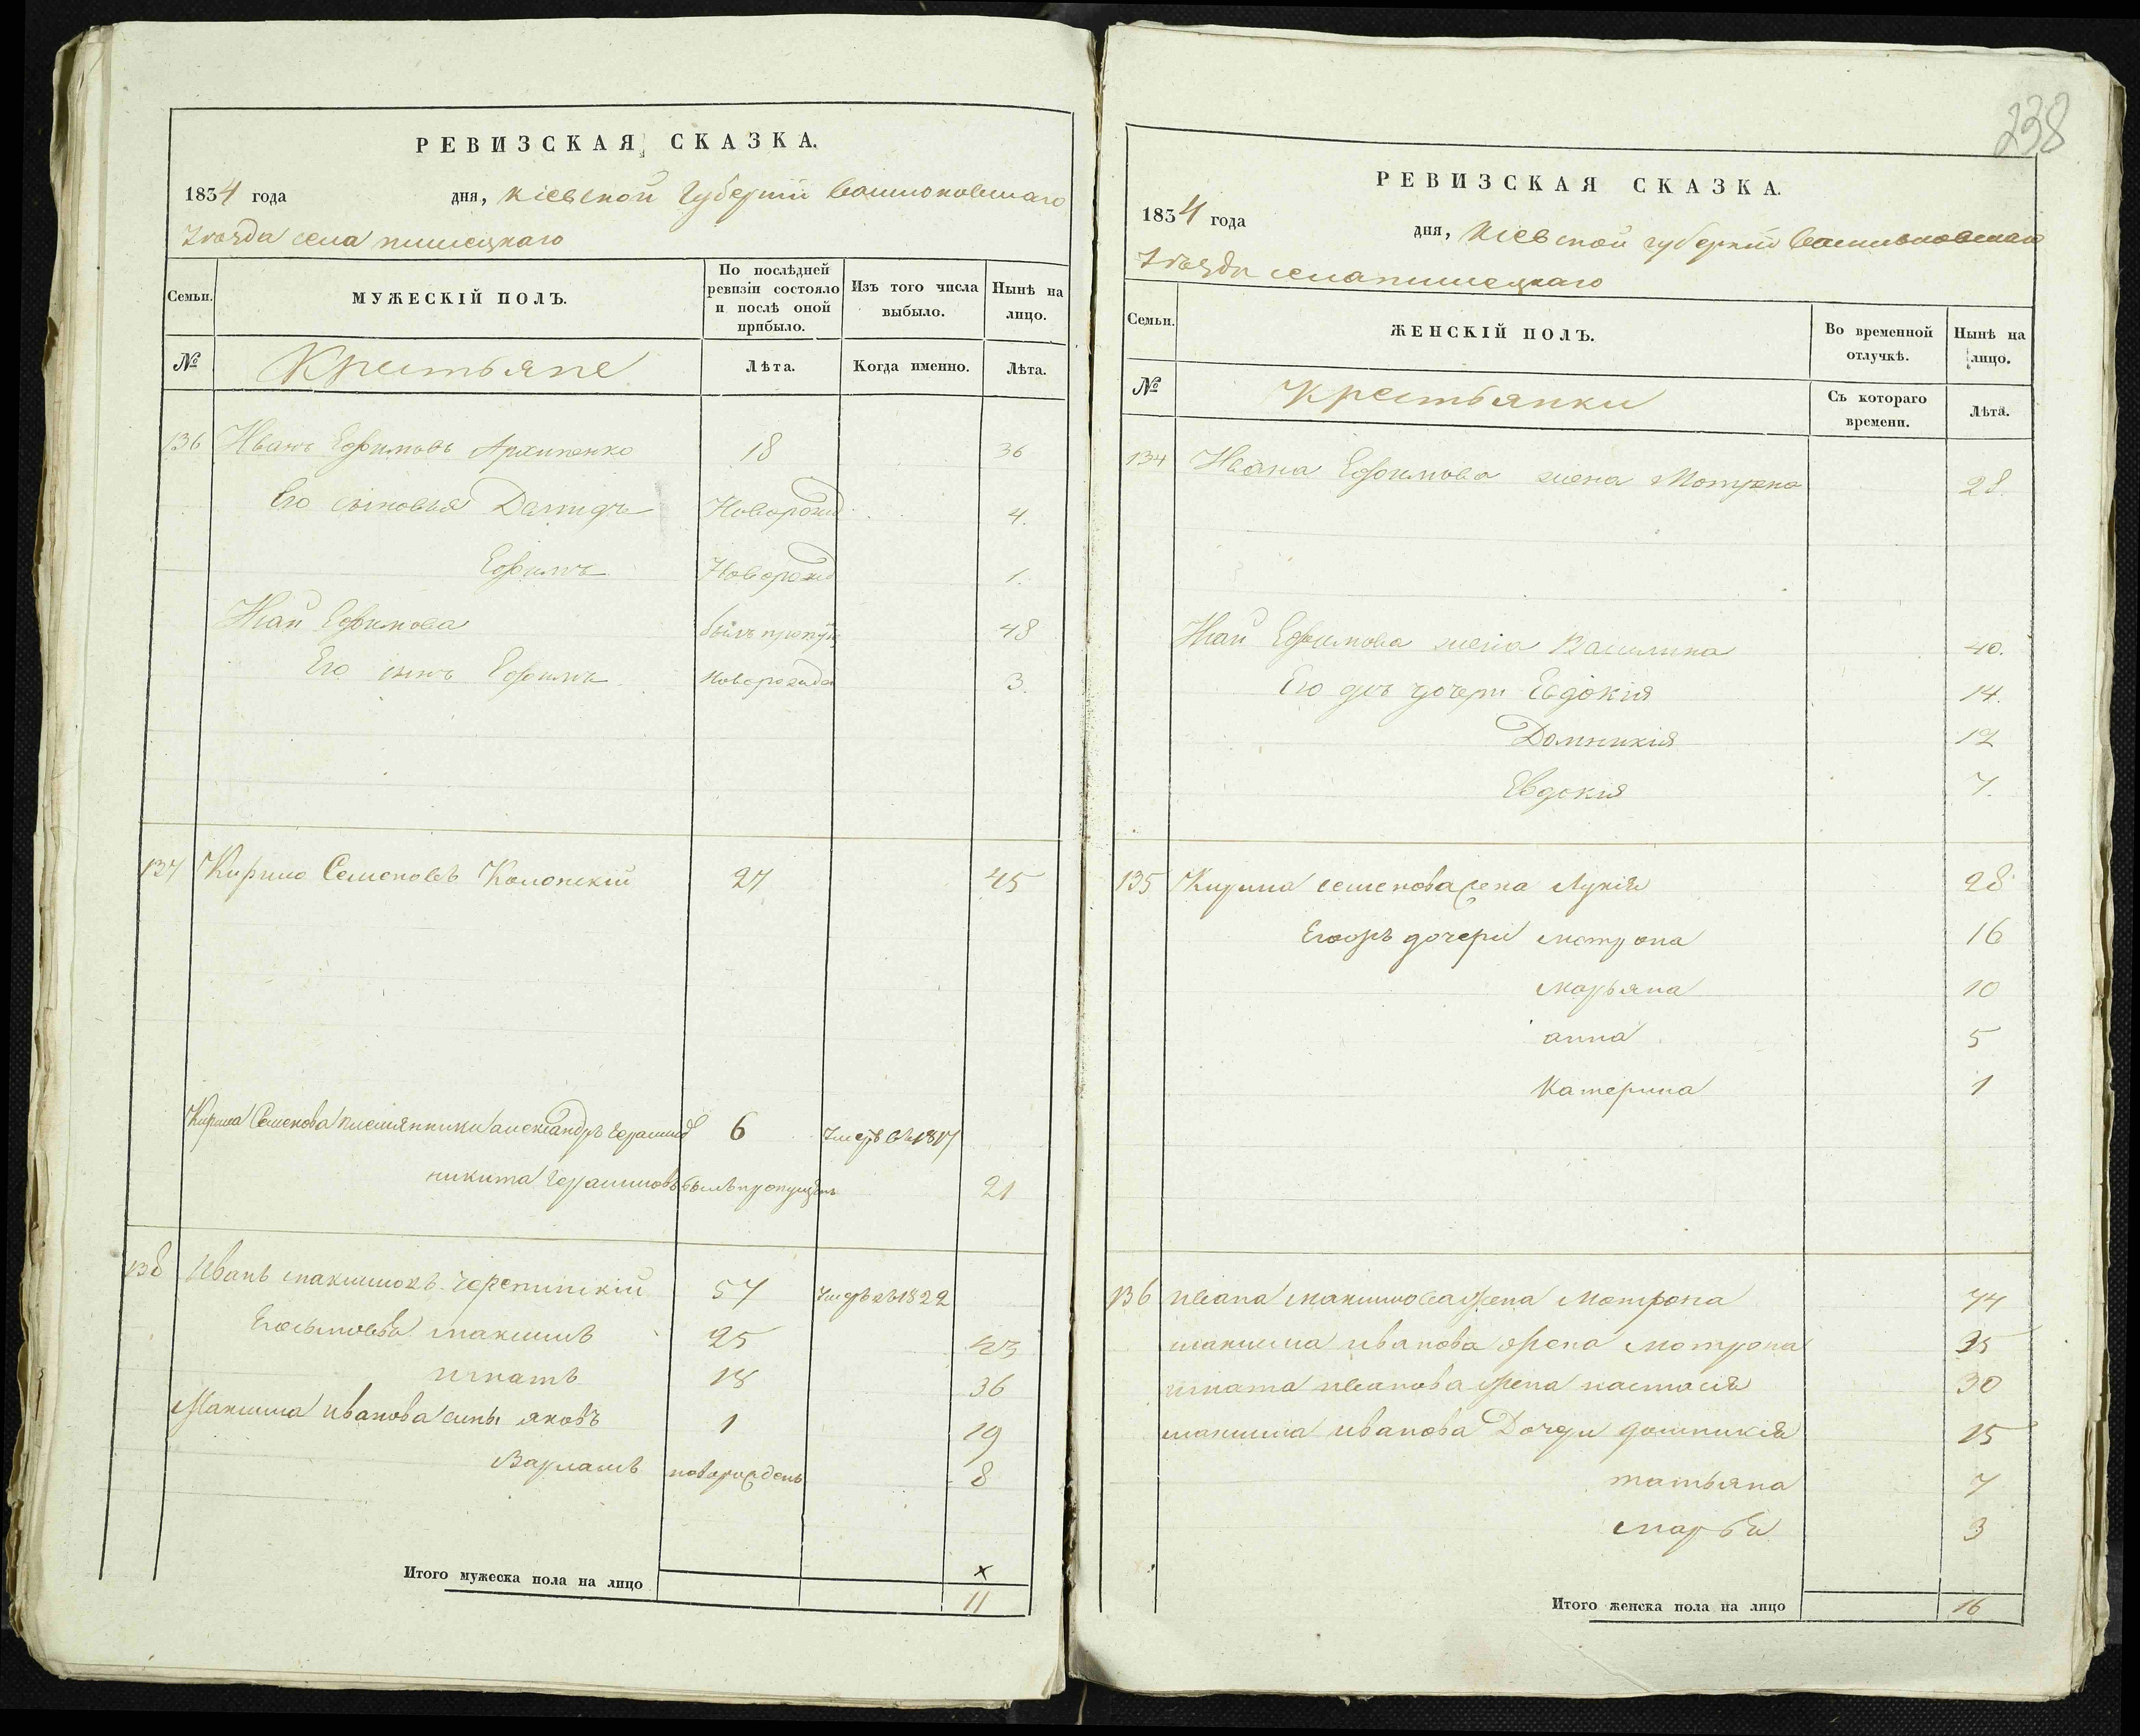 РЕВИЗСКАЯ СКАЗКА.
1834 года дня, Кіевской Губерніи Васильковскаго
Уѣзда села
Семьи.
МУЖЕСКІЙ ПОЛЪ.
По послѣдней ревизіи состояло и послѣ оной прибыло.
Изъ того числа выбыло.
Нынѣ на лицо.
№
Крестьяне
Лѣта.
Когда именно.
Лѣта.
136 Иванъ Ефимовъ Архипенко 18 36
Его сыновья Новорожд 4.
Ефимъ Новорожд 1.
Ефимова былъ 48
Его сынъ Ефимъ Новорожде 3.
137 Кирило Семеновъ 27 45
Кирила Семенова племянники александръ 6 Умеръ въ 1817
никита Герасимовъ былъ пропущенъ 21
138 Иванъ максимовъ 57 Умеръ въ 1822
Его сыновья максимъ 25 43
игнатъ 18 36
Максима Иванова сины яковъ 1 19
Варламъ новорожденъ 8
Итого мужеска пола на лицо
x
11
238
РЕВИЗСКАЯ СКАЗКА.
1834 года дня, Кіевской губерніи Васильковскаго
Уѣзда села
Семьи.
ЖЕНСКІЙ ПОЛЪ.
Во временной отлучкѣ.
Нынѣ на лицо.
№
Крестьянки
Съ котораго времени.
Лѣта.
134 Ивана Ефимова жена Мотрена 28.
Ефимова жена Василина 40.
Его дочери Евдокія 14.
Домникія 12
Евдокія 7.
135 Кирила семенова жена Лукія 28
Его дочери мотрона 16
марьяна 10
анна 5
Катерина 1
136 ивана максимова жена Мотрона 74
максима иванова жена мотрона 35
игната иванова жена настасія 30
максима иванова Дочери домникія 15
татьяна 7
марья 3
Итого женска пола на лицо 16